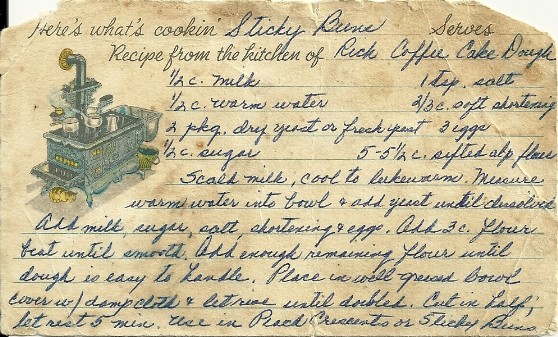 Here's what's cookin' Sticky Buns Serves
Recipe from the kitchen of Rich Coffee Cake Dough
1/2 c. milk 1 tsp. salt
1/2 c. warm water 2/3 c. soft shortening
2 pkg. dry yeast or fresh yeast 3 eggs
1/2 c. sugar 5-5 1/2 c. sifted alp flour
Scald milk, cool to lukewarm. Measure
warm water into bowl & add yeast until dissolved
Add milk, sugar, salt, shortening & eggs. Add 3 c. flour
beat until smooth. Add enough remaining flour until
dough is easy to handle. Place in well greased bowl
cover w/ damp cloth & let rise until doubled. Cut in half;
let rest 5 min. Use in Peach Crescents or Sticky Buns